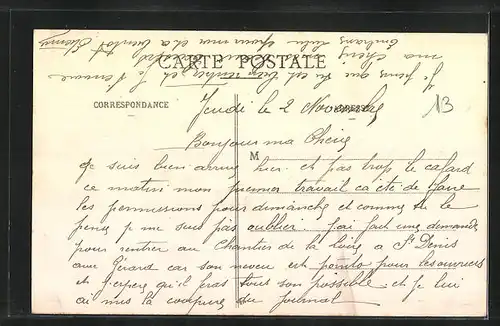 CARTE POSTALE
CORRESPONDANCE
Jeudi le 2 Novembre
13
Bonjour ma Cherie
M
Je suis bien arrivé hier et pas trop le cafard
ce matin mon premier travail ca ete de faire
les permissions pour dimanche et comme tu le
pense je me suis pas oublier. j'ai fait une demande
pour rentrer au Chantier de la loire a St Denis
avec Gerard car son neveu est pointo pour les ouvriers
et j'espere qu'il feras tous son possible et je lui
ai mis la coupure du journal
Je pense que tu est bien rentrer et je termine
ma cherie